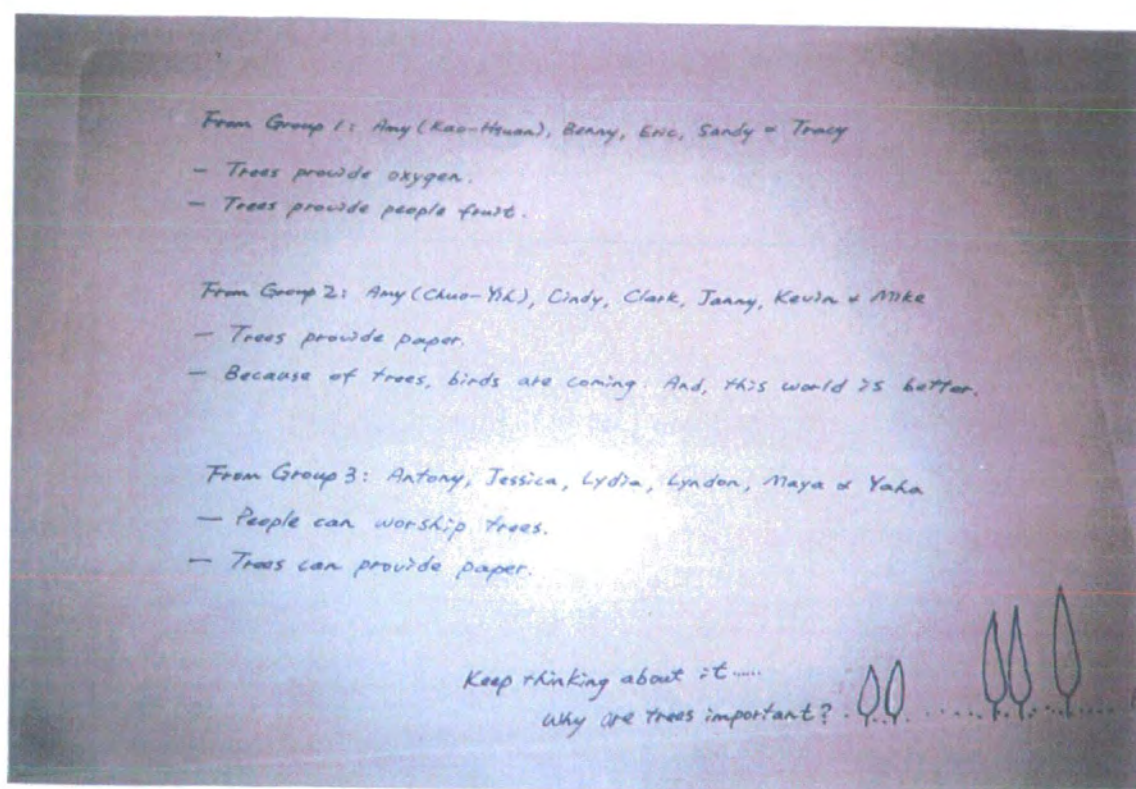 From Group 1: Amy (Kao-Hsuan), Benny, Eric, Sandy & Tracy
— Trees provide oxygen.
— Trees provide people fruit.
From Group 2: Amy (Chuo-Yih), Cindy, Clark, Janny, Kevin & Mike
— Trees provide paper.
— Because of trees, birds are coming. And, this world is better.
From Group 3: Antony, Jessica, Lydia, Lyndon, Maya & Yaha
— People can worship trees.
— Trees can provide paper.
Keep thinking about it ......
Why are trees important?